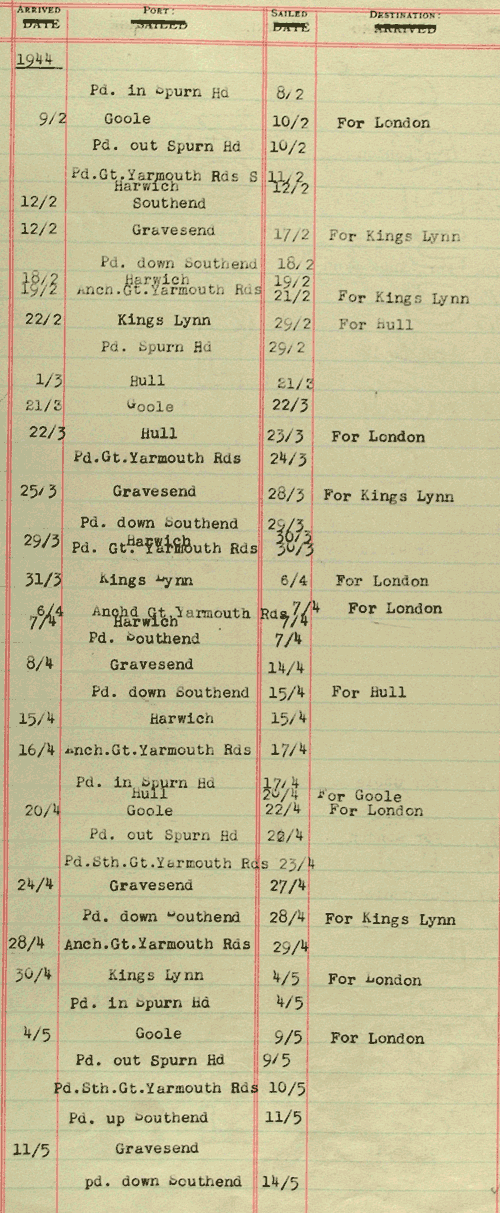 ARRIVED PORT: SAILED DESTINATION:
DATE SAILED DATE ARRIVED
1944
Pd. in Spurn Hd 8/2
9/2 Goole 10/2 For London
Pd. out Spurn Hd 10/2
Pd.Gt.Yarmouth Rds S 11/2
Harwich 12/2
12/2 Southend
12/2 Gravesend 17/2 For Kings Lynn
Pd. down Southend 18/2
18/2 Harwich 19/2
19/2 Anch.Gt.Yarmouth Rds 21/2 For Kings Lynn
22/2 Kings Lynn 29/2 For Hull
Pd. Spurn Hd 29/2
1/3 Hull 21/3
21/3 Goole 22/3
22/3 Hull 23/3 For London
Pd.Gt.Yarmouth Rds 24/3
25/3 Gravesend 28/3 For Kings Lynn
Pd. down Southend 29/3
29/3 Harwich 30/3
Pd. Gt. Yarmouth Rds 30/3
31/3 Kings Lynn 6/4 For London
6/4 Anchd Gt.Yarmouth Rds 7/4 For London
7/4 Harwich 7/4
Pd. Southend 7/4
8/4 Gravesend 14/4
Pd. down Southend 15/4 For Hull
15/4 Harwich 15/4
16/4 Anch.Gt.Yarmouth Rds 17/4
Pd. in Spurn Hd 17/4
Hull 20/4 For Goole
20/4 Goole 22/4 For London
Pd. out Spurn Hd 22/4
Pd.Sth.Gt.Yarmouth Rds 23/4
24/4 Gravesend 27/4
Pd. down Southend 28/4 For Kings Lynn
28/4 Anch.Gt.Yarmouth Rds 29/4
30/4 Kings Lynn 4/5 For London
Pd. in Spurn Hd 4/5
4/5 Goole 9/5 For London
Pd. out Spurn Hd 9/5
Pd.Sth.Gt.Yarmouth Rds 10/5
Pd. up Southend 11/5
11/5 Gravesend
pd. down Southend 14/5